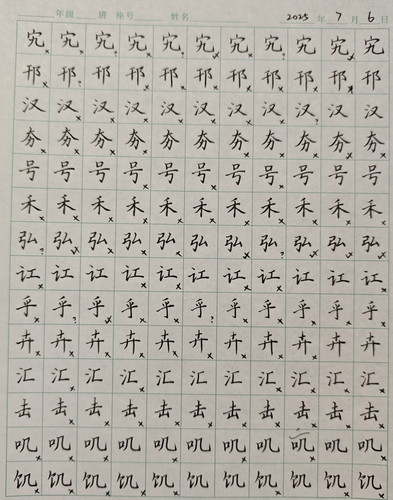 年级 班 座号 姓名 2025 年 7 月 6 日
宄 宄 宄 宄 宄 宄 宄 宄 宄 宄 宄
邗 邗 邗 邗 邗 邗 邗 邗 邗 邗 邗
汉 汉 汉 汉 汉 汉 汉 汉 汉 汉 汉
夯 夯 夯 夯 夯 夯 夯 夯 夯 夯 夯
号 号 号 号 号 号 号 号 号 号 号
禾 禾 禾 禾 禾 禾 禾 禾 禾 禾 禾
弘 弘 弘 弘 弘 弘 弘 弘 弘 弘 弘
讧 讧 讧 讧 讧 讧 讧 讧 讧 讧 讧
乎 乎 乎 乎 乎 乎 乎 乎 乎 乎 乎
卉 卉 卉 卉 卉 卉 卉 卉 卉 卉 卉
汇 汇 汇 汇 汇 汇 汇 汇 汇 汇 汇
击 击 击 击 击 击 击 击 击 击 击
叽 叽 叽 叽 叽 叽 叽 叽 叽 叽 叽
饥 饥 饥 饥 饥 饥 饥 饥 饥 饥 饥